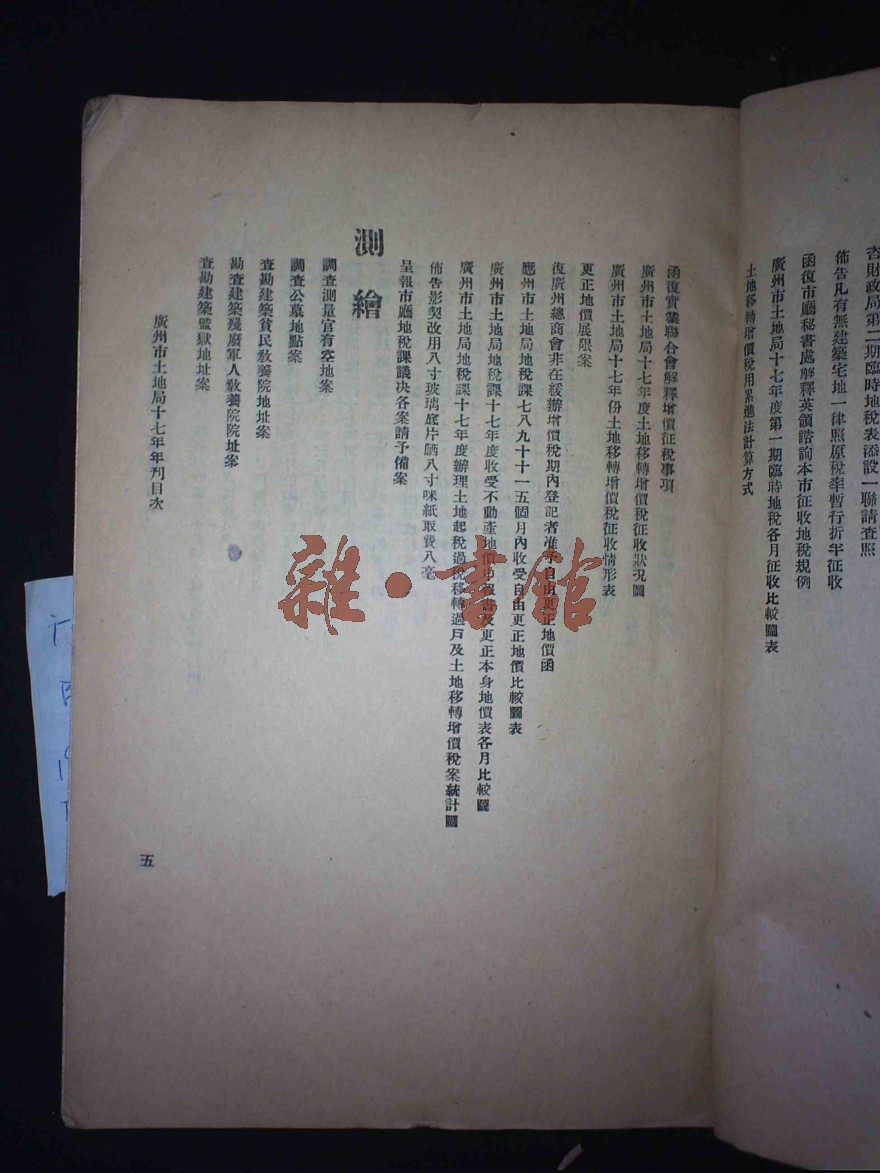 咨財政局第二期臨時地稅表添設一聯請查照
佈告凡有無建築宅地一律照原稅率暫行折半征收
函復市廳秘書處解釋英領諮詢本市征收地稅規例
廣州市土地局十七年度第一期臨時地稅各月征收比較圖表
土地移轉增價稅用累進法計算方式
函復實業聯合會解釋增價征稅事項
廣州市土地局十七年度土地移轉增價稅征收狀况圖
廣州市土地局十七年份土地移轉增價稅征收情形表
更正地價展限案
復廣州總商會非在緩辦增價稅期內登記者准予自由更正地價函
應州市土地局地稅課七八九十十一五個月內收受自由更正地價比較圖表
廣州市土地局地稅課十七年度收受不動產地價申報書及更正本身地價表各月比較圖
廣州市土地局地稅課十七年度辦理土地起稅過稅移轉過戶及土地移轉增價稅案統計圖
佈告影契改用八寸玻璃底片晒八寸咪紙取費八毫
呈報市廳地稅課議决各案請予備案
測繪
調查測量官有空地案
調查公墓地點案
查勘建築貧民教養院地址案
勘查建築殘廢軍人教養院院址案
查勘建築監獄地址案
廣州市土地局十七年年刊目次
五
雜·書館